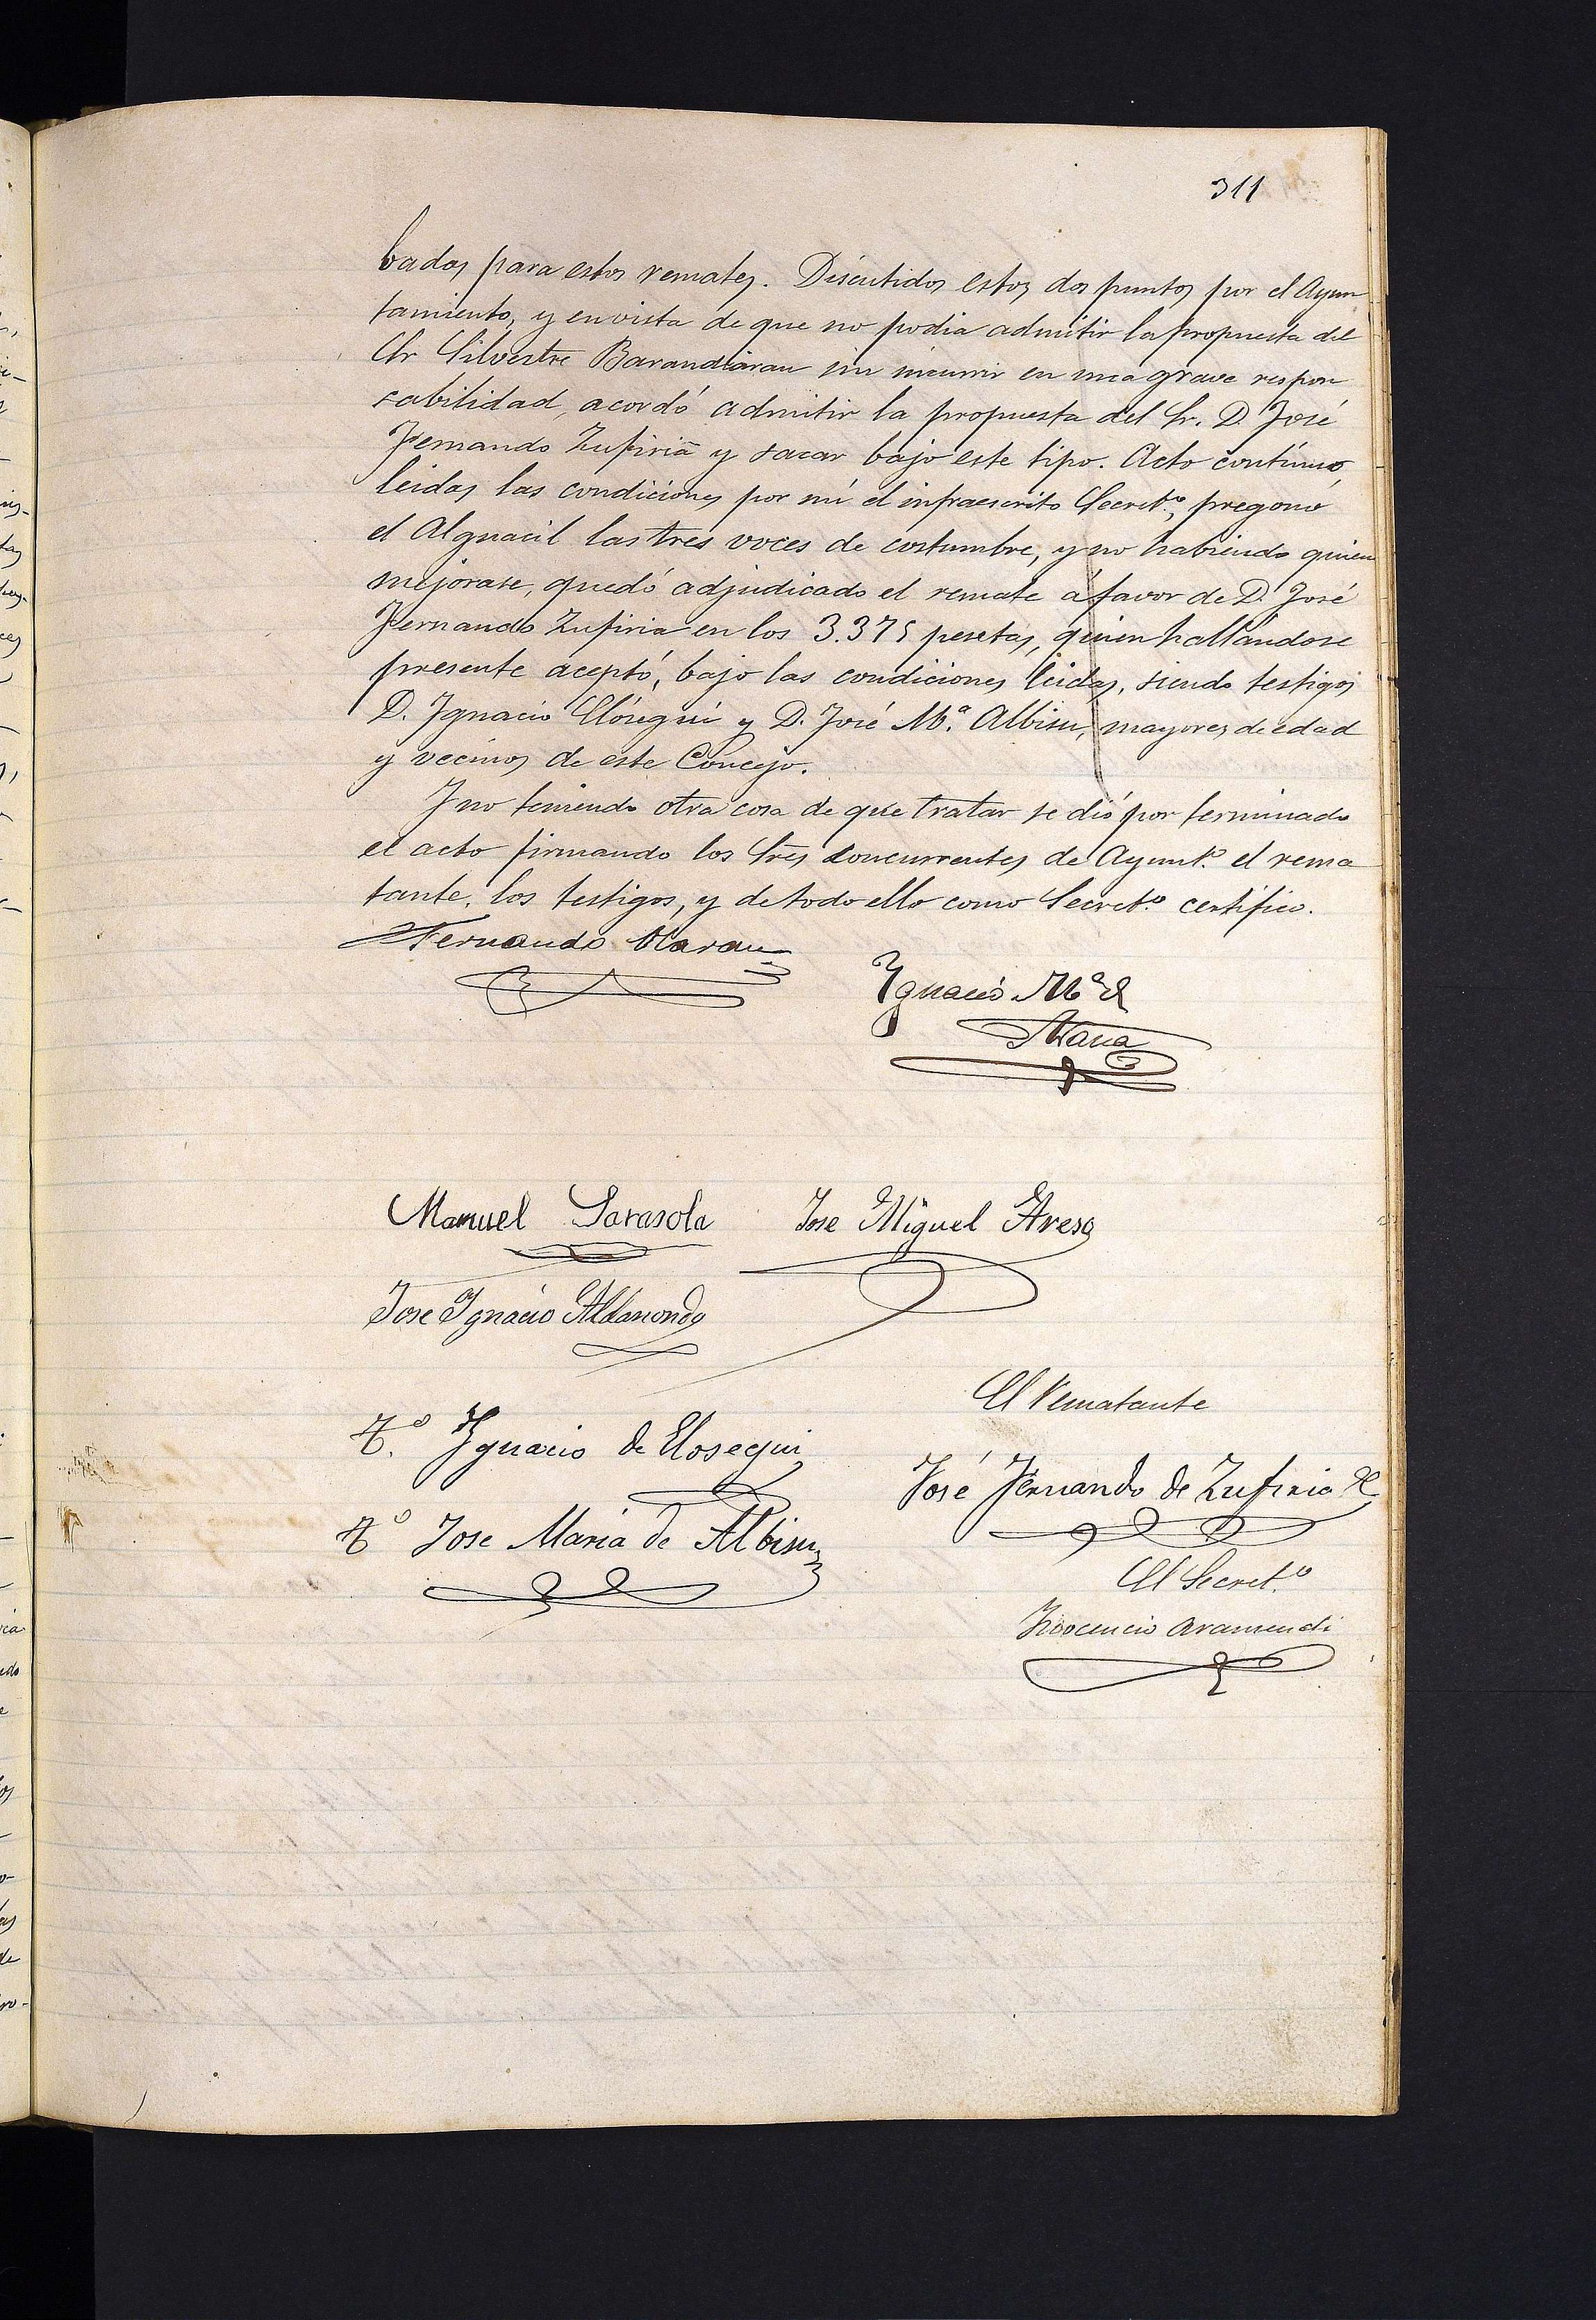 311
bados para estos remates. Discutidos estos dos puntos por el Ayun
tamiento, y en vista de que no podia admitir la propuesta del
Sr Silvestre Barandiaran sin incurrir en una grave respon
sabilidad, acordó admitir la propuesta del Sr. D. José
Fernando Zufiria y sacar bajo este tipo. Acto contínuo
leidas las condiciones por mí el infraescrito Secret.º, pregonó
el Alguacil las tres voces de costumbre, y no habiendo quien
mejorase, quedó adjudicado el remate á favor de D. José
Fernando Zufiria en los 3.375 pesetas, quien hallándose
presente aceptó, bajo las condiciones leidas, siendo testigos
D. Ignacio Elósegui y D. José M.ª Albisu, mayores de edad
y vecinos de este Concejo.
Y no teniendo otra cosa de que tratar se dió por terminado
el acto firmando los Sres concurrentes de Ayunt.º el rema
tante, los testigos, y de todo ello como Secret.º certifico.
Fernando
Ygnacio M.ª
Manuel Sarasola Jose Miguel Areso
Jose Ygnacio Aldanondo
El Rematante
T.º Ygnacio de Elosegui
José Fernando de Zufiria
T.º Jose Maria de Albisu
El Secret.º
Inocencio Aramendi